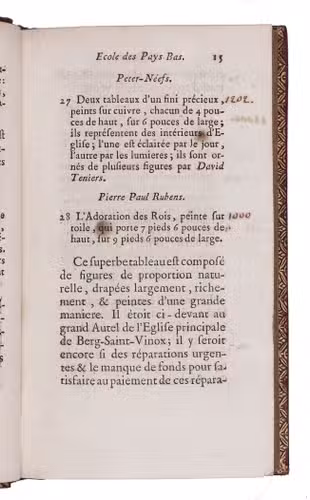 Ecole des Pays Bas. 15
Peter-Néefs.
27 Deux tableaux d'un fini précieux, 1202.
peints sur cuivre, chacun de 4 pou-
ces de haut, sur 6 pouces de large;
ils représentent des intérieurs d'E-
glise; l'une est éclairée par le jour,
l'autre par les lumieres; ils sont or-
nés de plusieurs figures par David
Teniers.
Pierre Paul Rubens.
28 L'Adoration des Rois, peinte sur 1000
toile, qui porte 7 pieds 6 pouces de
haut, sur 9 pieds 6 pouces de large.
Ce superbe tableau est composé
de figures de proportion natu-
relle, drapées largement, riche-
ment, & peintes d'une grande
maniere. Il étoit ci-devant au
grand Autel de l'Eglise principale
de Berg-Saint-Vinox; il y seroit
encore si des réparations urgen-
tes & le manque de fonds pour sa-
tisfaire au paiement de ces répara-